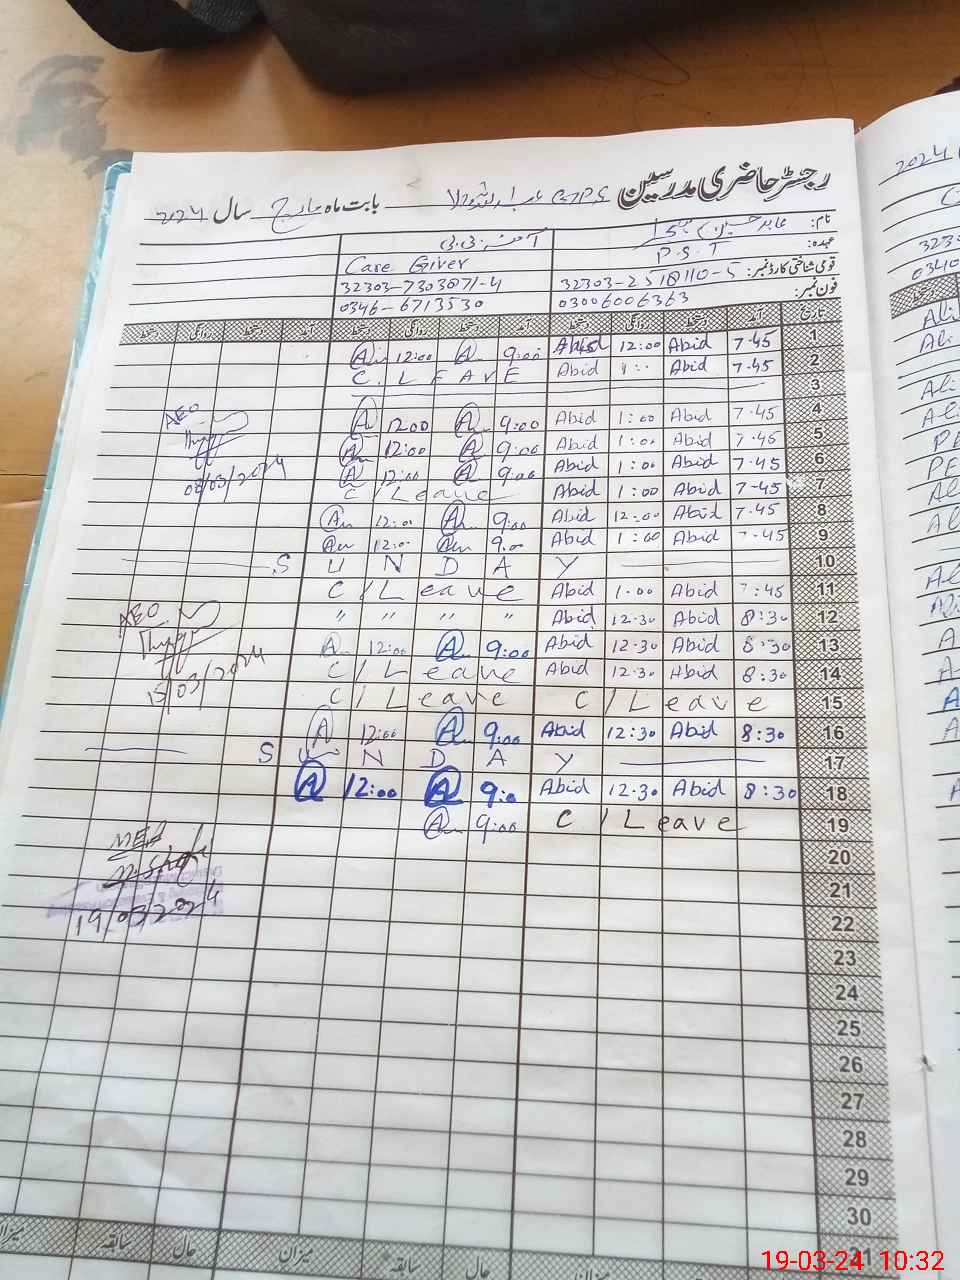 رجسٹر حاضری مدرسین GPS بابت ماہ مارچ سال 2024
نام: عابد حسین
عہدہ: P.S.T Care Giver
قومی شناختی کارڈ نمبر: 32303-2518110-5 32303-730387/-4
فون نمبر: 03006006363 0346-6713530
تاریخ آمد دستخط روانگی دستخط آمد دستخط روانگی دستخط آمد دستخط روانگی دستخط
1 7.45 Abid 12:00 Abid 9:00 12:00
2 7.45 Abid 1:00 Abid C. LEAVE
3
4 7.45 Abid 1:00 Abid 9:00 12:00
AEO
5 7.45 Abid 1:00 Abid 9:00 12:00
6 7.45 Abid 1:00 Abid 9:00 12:00
08/03/2024
7 7-45 Abid 1:00 Abid C/Leave
8 7.45 Abid 12:00 Abid 9:00 12:00
9 7.45 Abid 1:00 Abid 9.00 12:00
10 SUNDAY
11 7:45 Abid 1.00 Abid C/Leave
12 8:30 Abid 12.30 Abid " " " "
AEO
13 8:30 Abid 12:30 Abid 9:00 12:00
14 8:30 Abid 12:30 Abid C/Leave
15/03/2024
15 C/Leave C/Leave
16 8:30 Abid 12:30 Abid 9:00 12:00
17 SUNDAY
18 8:30 Abid 12.30 Abid 9:0 12:00
19 C/Leave 9:00
20
21
19/03/2024
22
23
24
25
26
27
28
29
30
31
میزان سابقہ حال میزان سابقہ حال
19-03-24 10:32